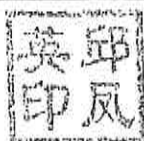 邱凤
英印